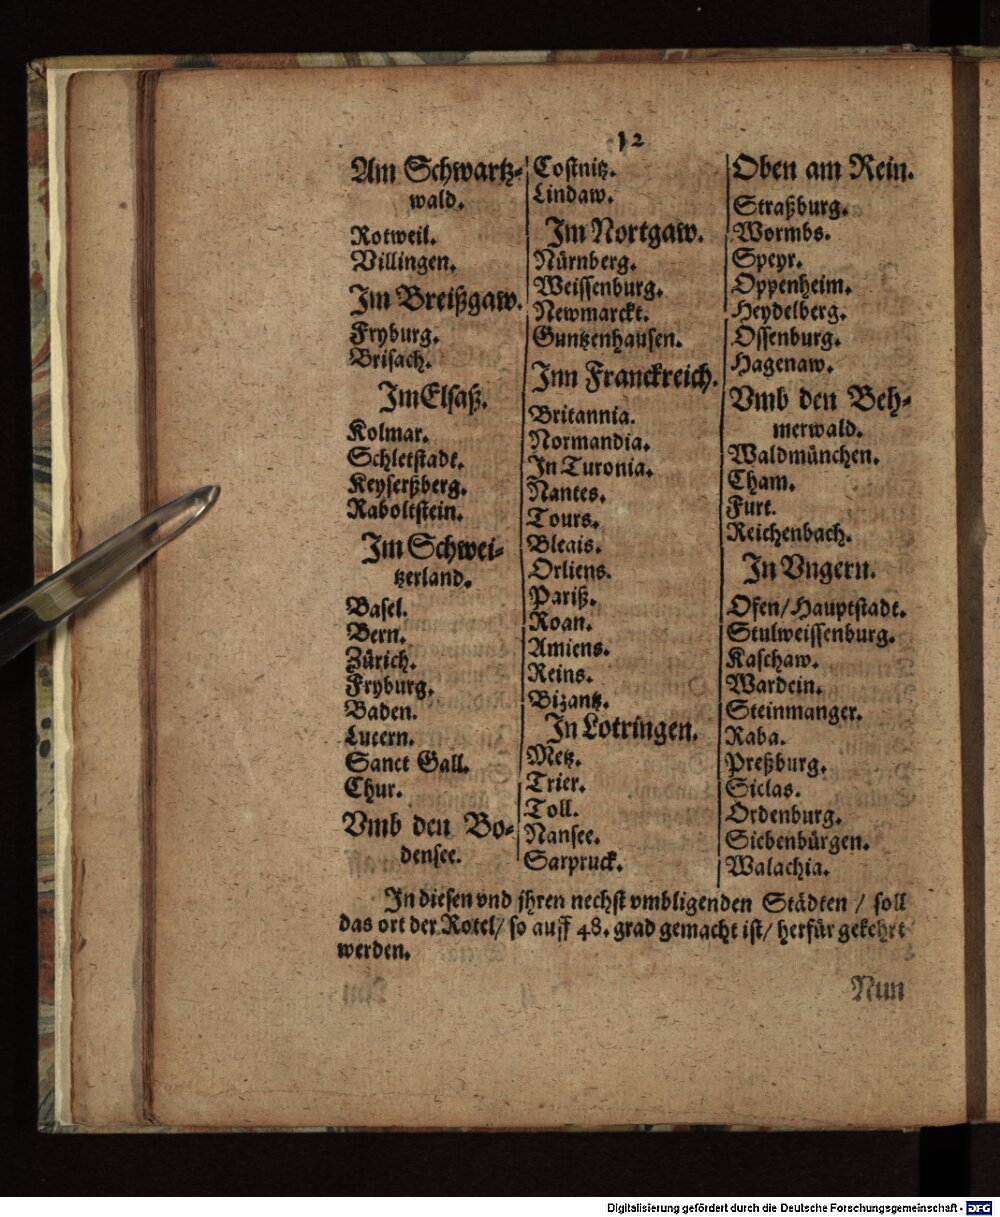 12
Am Schwartz-
wald.
Rotweil.
Villingen.
Im Breißgaw.
Fryburg.
Brisach.
Im Elsaß.
Kolmar.
Schletstadt.
Keyserßberg.
Raboltstein.
Im Schwei-
tzerland.
Basel.
Bern.
Zürich.
Fryburg.
Baden.
Lucern.
Sanct Gall.
Chur.
Vmb den Bo-
densee.
Costnitz.
Lindaw.
Im Nortgaw.
Nürnberg.
Weissenburg.
Newmarckt.
Guntzenhausen.
Inn Franckreich.
Britannia.
Normandia.
In Turonia.
Nantes.
Tours.
Bleais.
Orliens.
Pariß.
Roan.
Amiens.
Reins.
Bizantz.
In Lotringen.
Metz.
Trier.
Toll.
Nansee.
Sarpruck.
Oben am Rein.
Straßburg.
Wormbs.
Speyr.
Oppenheim.
Heydelberg.
Offenburg.
Hagenaw.
Vmb den Beh-
merwald.
Waldmünchen.
Cham.
Furt.
Reichenbach.
In Vngern.
Ofen/Hauptstadt.
Stulweissenburg.
Kaschaw.
Wardein.
Steinmanger.
Raba.
Preßburg.
Siclas.
Ordenburg.
Siebenbürgen.
Walachia.
In diesen vnd jhren nechst vmbligenden Städten / soll
das ort der Rotel/ so auff 48. grad gemacht ist/ herfür gekehrt
werden.
Nun
Digitalisierung gefördert durch die Deutsche Forschungsgemeinschaft - DFG